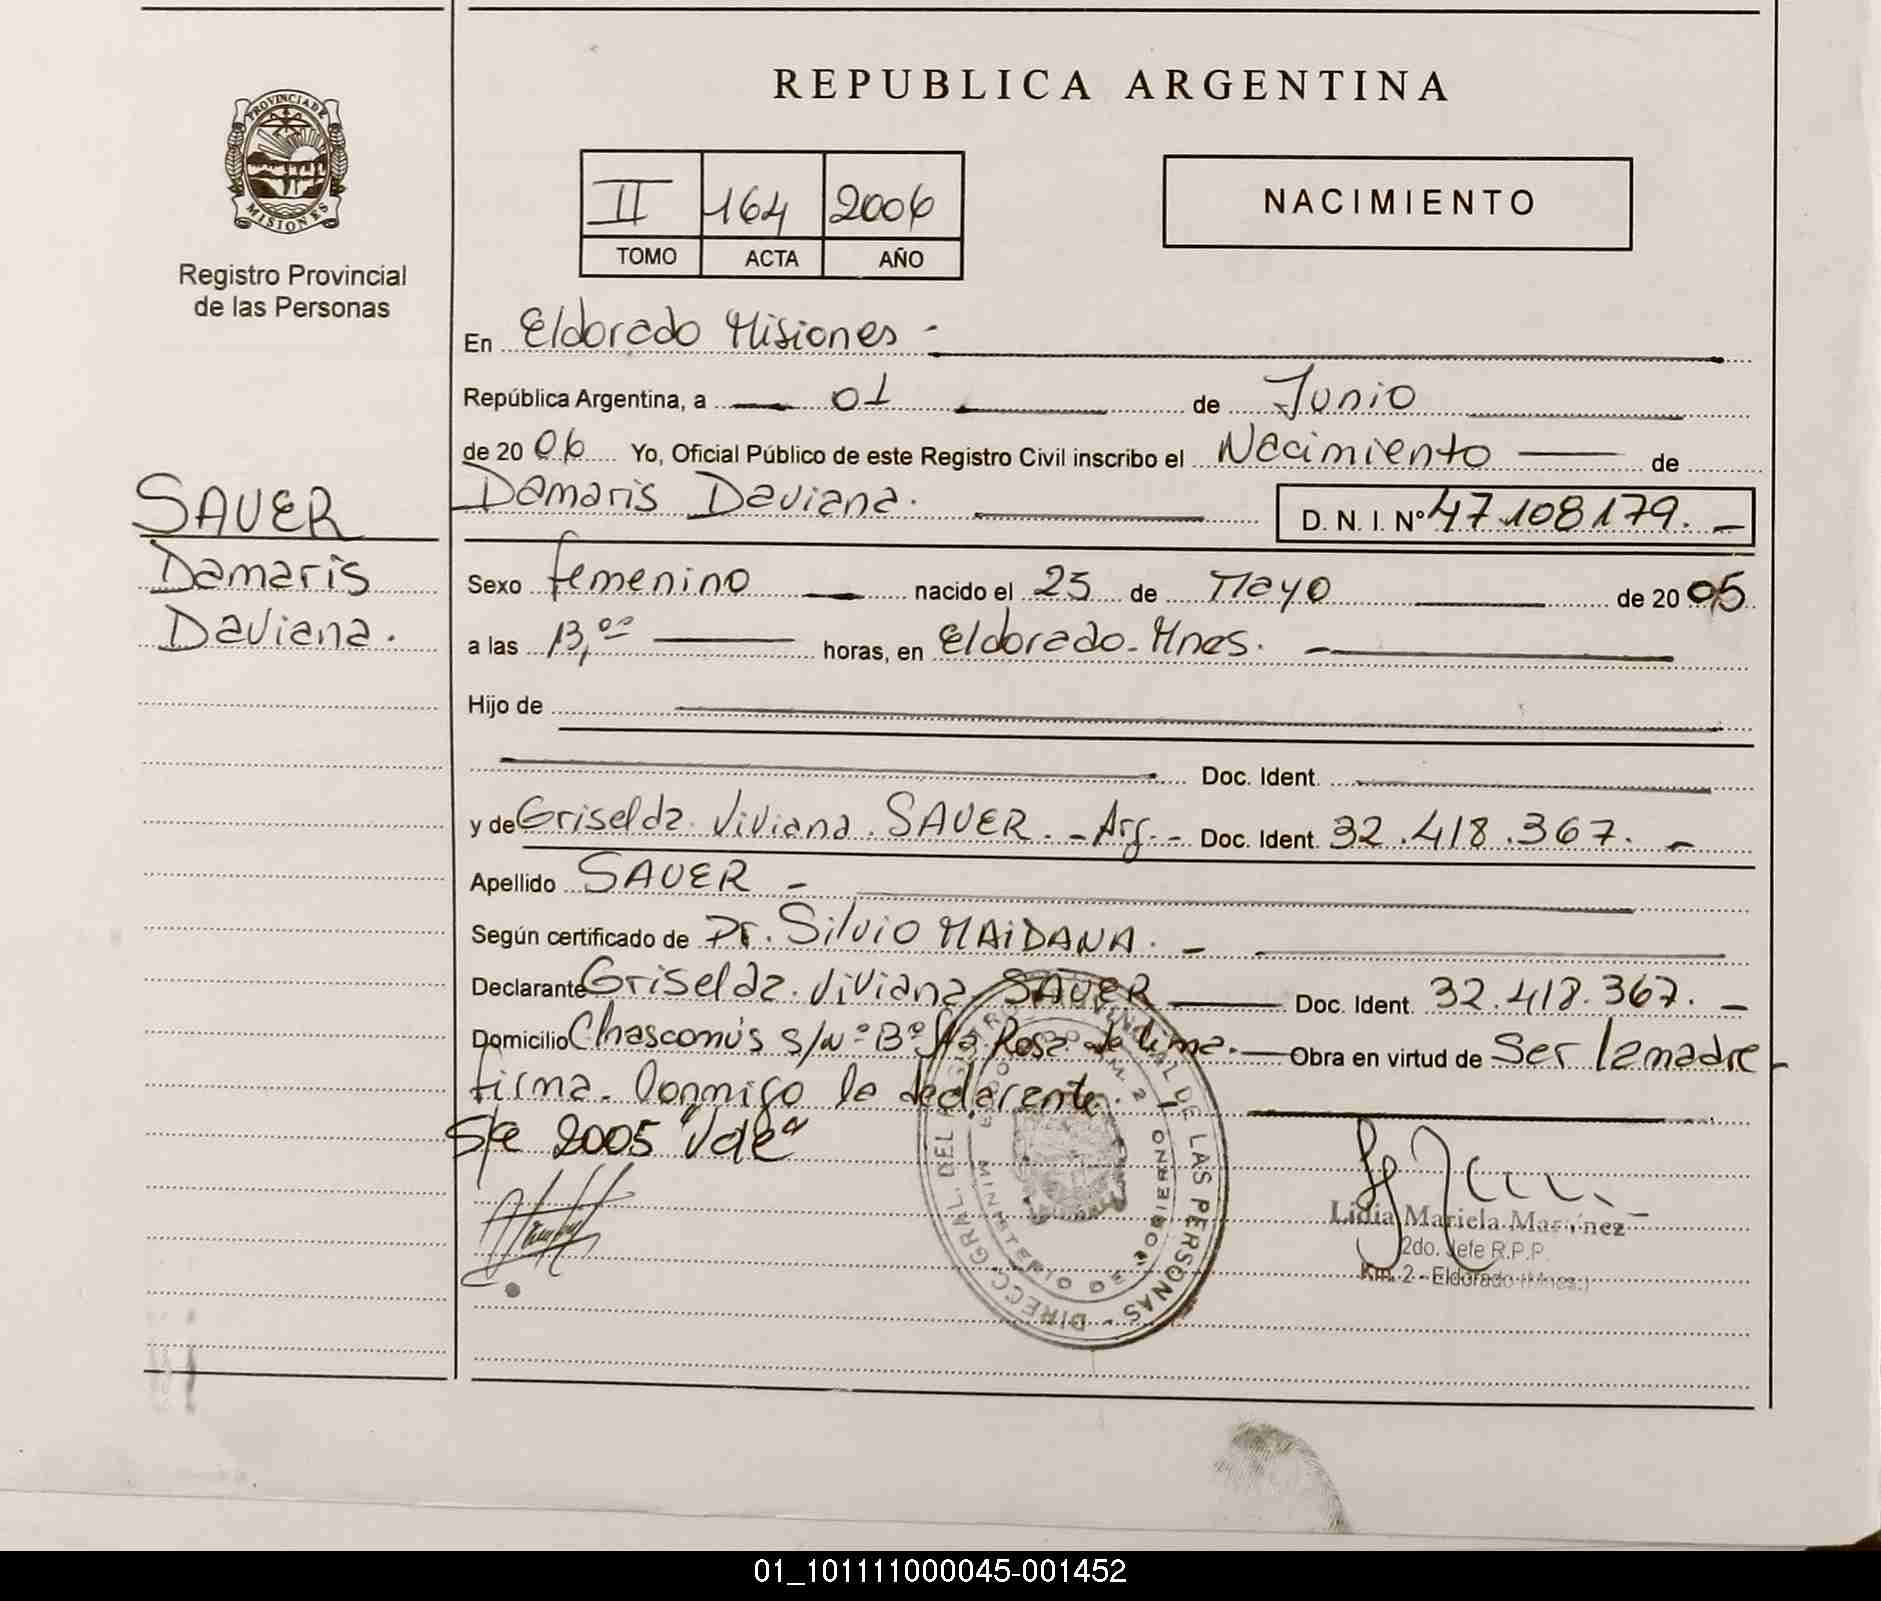 REPUBLICA ARGENTINA
PROVINCIA DE MISIONES
Registro Provincial
de las Personas
II 164 2006
TOMO ACTA AÑO
NACIMIENTO
En Eldorado Misiones -
República Argentina, a 01 de Junio
de 2006 Yo, Oficial Público de este Registro Civil inscribo el Nacimiento de
Damaris Daviana. D. N. I. Nº 47.108.179. -
SAUER
Damaris
Daviana.
Sexo femenino nacido el 25 de Mayo de 2005
a las 13,ºº horas, en Eldorado - Mnes.
Hijo de
Doc. Ident.
y de Griselda Viviana SAUER. - Arg. - Doc. Ident. 32.418.367. -
Apellido SAUER -
Según certificado de Dr. Silvio MAIDANA. -
Declarante Griselda Viviana SAUER Doc. Ident. 32.418.367. -
Domicilio Chascomús s/nº Bº Sta Rosa de Lima. Obra en virtud de Ser la madre -
firma conmigo la declarante. -
S/e 2005 "Vale"
DIRECC. GRAL. DEL REGISTRO PROVINCIAL DE LAS PERSONAS -
MINISTERIO DE GOBIERNO
Lidia Mariela Martinez
2do. Jefe R.P.P.
Km. 2 - Eldorado (Mnes.)
01_101111000045-001452